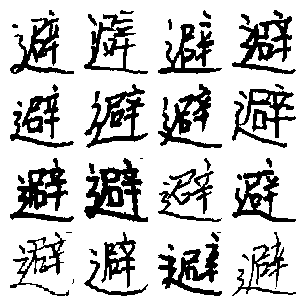 避避避避
避避避避
避避避避
避避避避